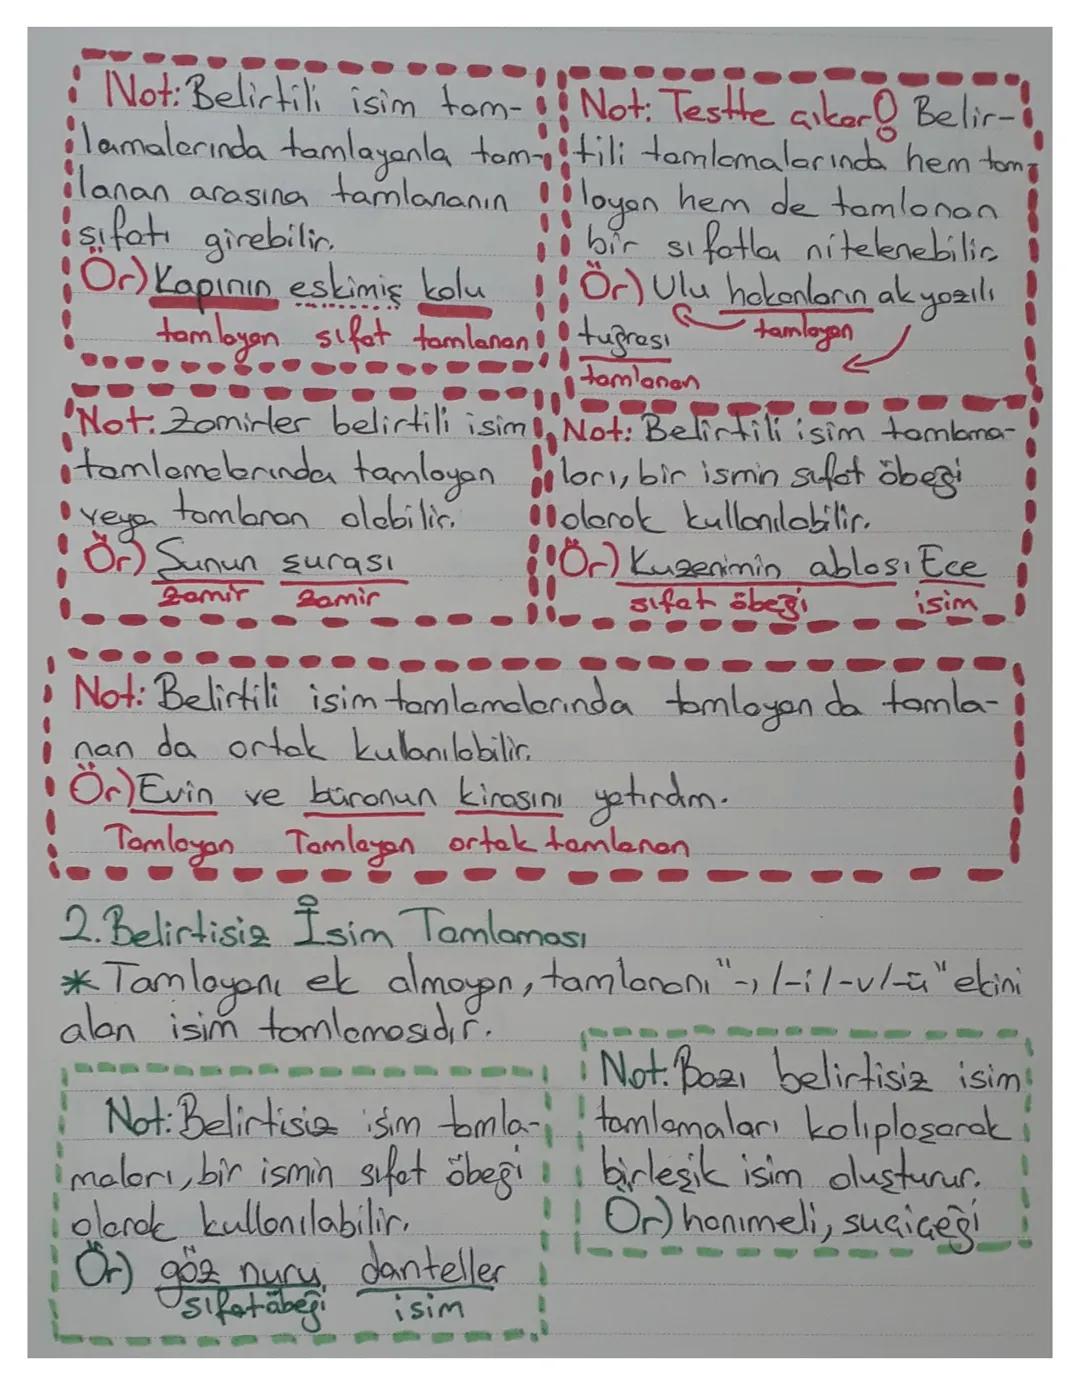 Not: Belirtili isim tam-
lamalarında tamlayanla tam-
lanan arasına tamlananın
sıfatı girebilir.
Ör) Kapının eskimiş kolu
tamlayan sıfat tamlanan
Not: Testte çıkar! Belir-
tili tamlamalarında hem tam-
layan hem de tamlanan
bir sıfatla nitelenebilir
Ör) Ulu hakanların ak yazılı
tamlayan
tuğrası
tamlanan
Not: Zamirler belirtili isim
tamlamalarında tamlayan
veya tamlanan olabilir.
Ör) Şunun şurası
zamir zamir
Not: Belirtili isim tamlama-
ları, bir ismin sıfat öbeği
olarak kullanılabilir.
Ör) Kuzenimin ablası Ece
sıfat öbeği isim
Not: Belirtili isim tamlamalarında tamlayan da tamla-
nan da ortak kullanılabilir.
Ör) Evin ve büronun kirasını yatırdım.
Tamlayan Tamlayan ortak tamlanan
2. Belirtisiz İsim Tamlaması
* Tamlayanı ek almayan, tamlananı "-ı/-i/-u/-ü" ekini
alan isim tamlamasıdır.
Not: Belirtisiz isim tamla-
maları, bir ismin sıfat öbeği
olarak kullanılabilir.
Ör) göz nuru danteller
sıfat öbeği isim
Not: Bazı belirtisiz isim
tamlamaları kalıplaşarak
birleşik isim oluşturur.
Ör) hanımeli, suçiçeği